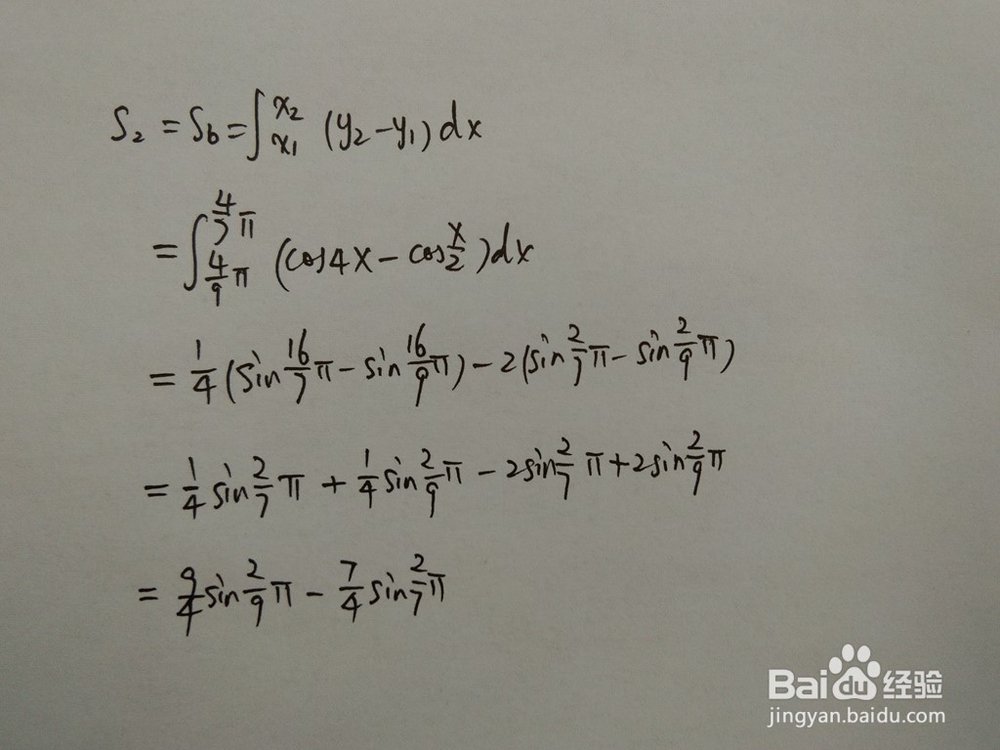 S₂ = S₆ = ∫ x₂ x₁ (y₂ - y₁) dx
= ∫ 4/7 π 4/9 π (cos4x - cos x/2) dx
= 1/4 (sin 16/7 π - sin 16/9 π) - 2(sin 2/7 π - sin 2/9 π)
= 1/4 sin 2/7 π + 1/4 sin 2/9 π - 2sin 2/7 π + 2sin 2/9 π
= 9/4 sin 2/9 π - 7/4 sin 2/7 π
Baidu 经验
jingyan.baidu.com